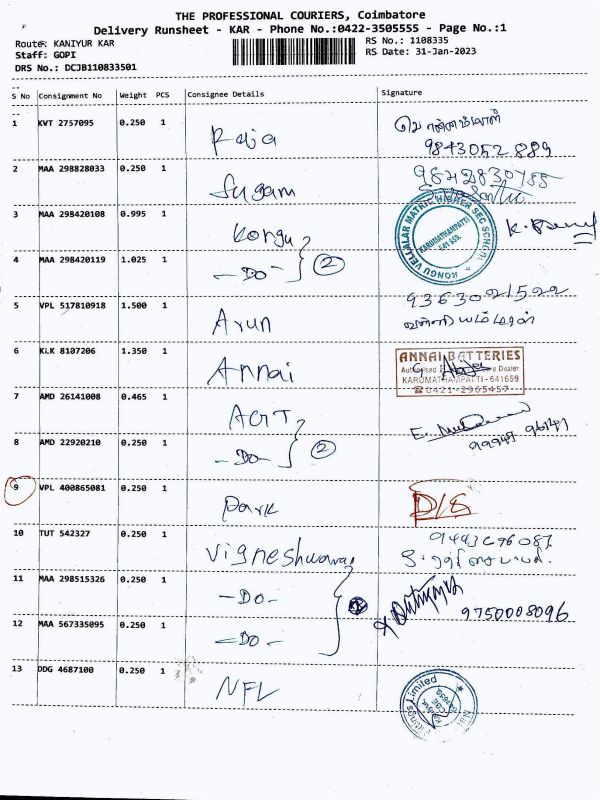 THE PROFESSIONAL COURIERS, Coimbatore
Delivery Runsheet - KAR - Phone No.:0422-3505555 - Page No.:1
Route: KANIYUR KAR
RS No.: 1108335
Staff: GOPI
RS Date: 31-Jan-2023
DRS No.: DCJB110833501
S No Consignment No Weight PCS Consignee Details Signature
1 KVT 2757095 0.250 1 Raja
9843052889
2 MAA 298828033 0.250 1 Sugam
3 MAA 298420108 0.995 1 Kongu
KONGU VELLALAR MATRIC HIGHER SEC SCHOOL
KARUMATHAMPATTI
641 659.
4 MAA 298420119 1.025 1 -DO- 2
5 VPL 517810918 1.500 1 Arun
9363021522
6 KLK 8107206 1.350 1 Annai
ANNAI BATTERIES
Authorised Dealer
KARUMATHAMPATTI-641659
☎0421-2965457
7 AMD 26141008 0.465 1 AGT
8 AMD 22920210 0.250 1 -DO- 2
99947 96747
9 VPL 400865081 0.250 1 Park D/S
10 TUT 542327 0.250 1 Vigneshwaraa
11 MAA 298515326 0.250 1 -DO-
12 MAA 567335095 0.250 1 -DO-
9750008096
13 DDG 4687100 0.250 1 NFL
Fittings Limited